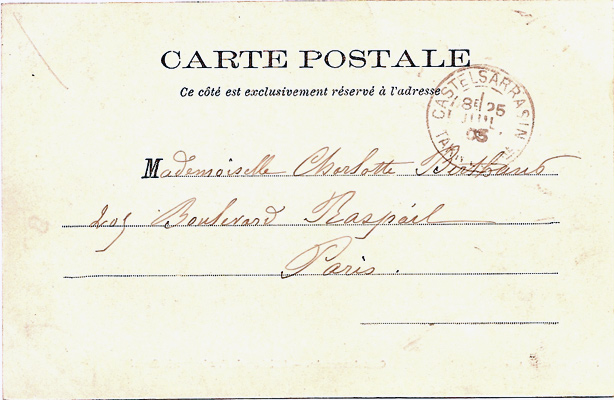 CARTE POSTALE
Ce côté est exclusivement réservé à l'adresse
CASTELSARRASIN
8E 25
JUIL
Mademoiselle Charlotte Berthaud
205 Boulevard Raspail
Paris.